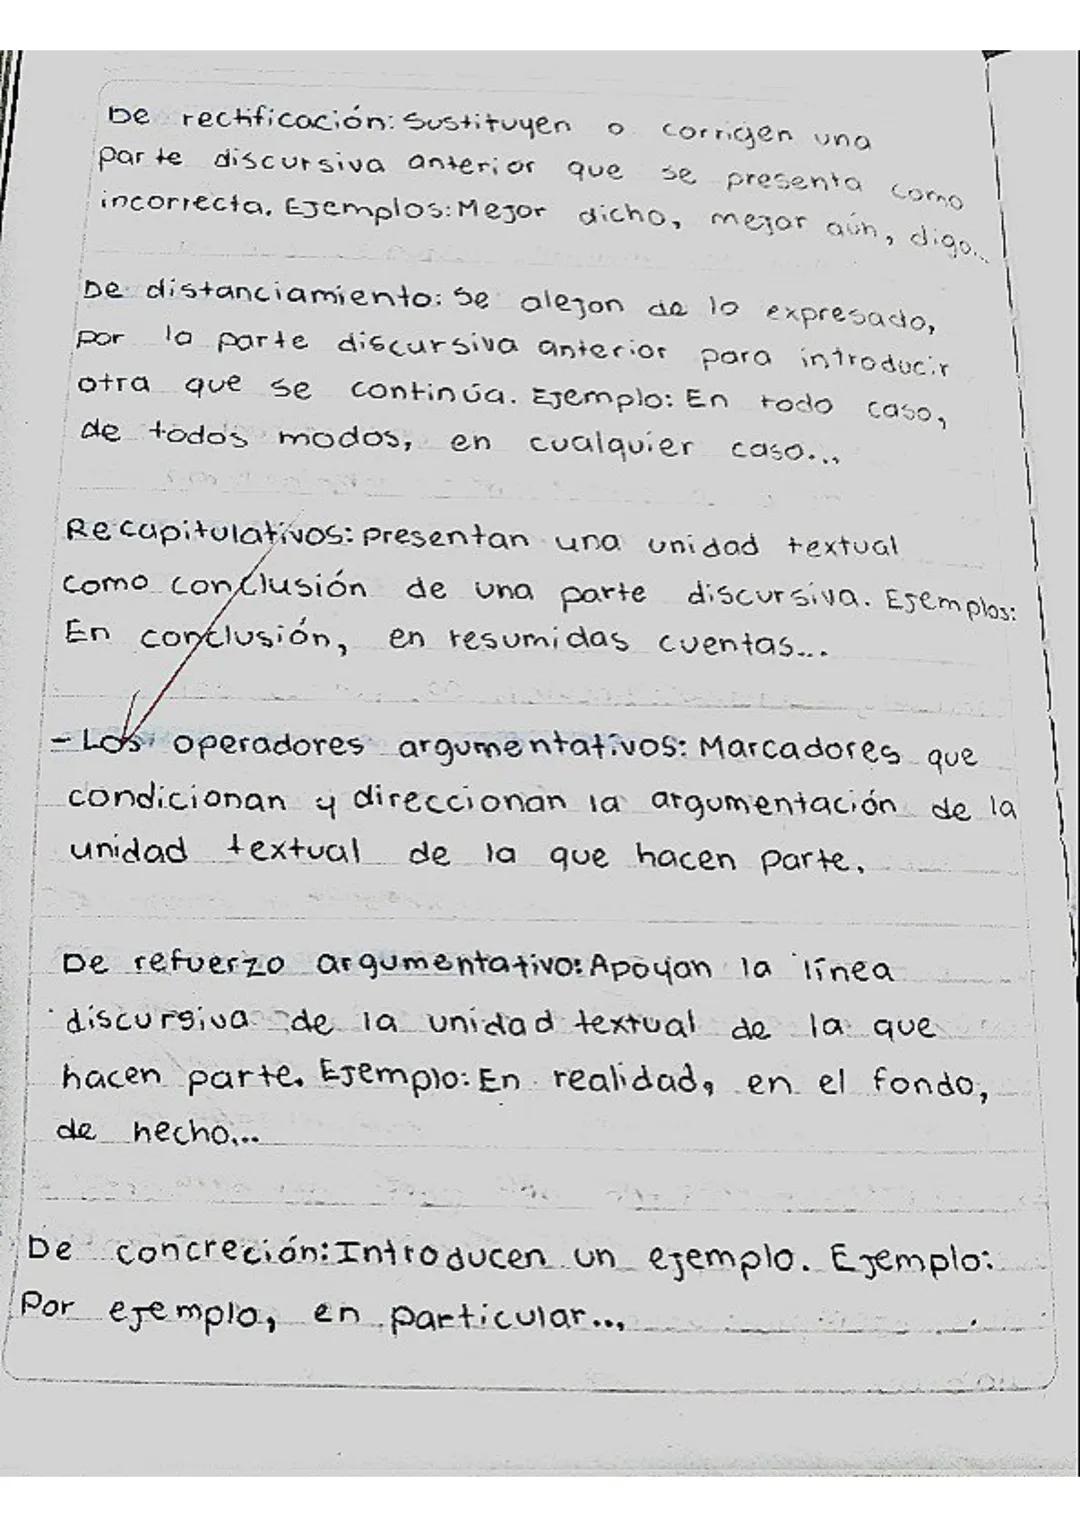 De rectificación: Sustituyen o corrigen una
parte discursiva anterior que se presenta como
incorrecta. Ejemplos: Mejor dicho, mejor aún, digo...
De distanciamiento: Se alejan de lo expresado,
por la parte discursiva anterior para introducir
otra que se continúa. Ejemplo: En todo caso,
de todos modos, en cualquier caso...
Recapitulativos: presentan una unidad textual
como conclusión de una parte discursiva. Ejemplos:
En conclusión, en resumidas cuentas...
- Los operadores argumentativos: Marcadores que
condicionan y direccionan la argumentación de la
unidad textual de la que hacen parte.
De refuerzo argumentativo: Apoyan la línea
discursiva de la unidad textual de la que
hacen parte. Ejemplo: En realidad, en el fondo,
de hecho...
De concreción: Introducen un ejemplo. Ejemplo:
Por ejemplo, en particular...